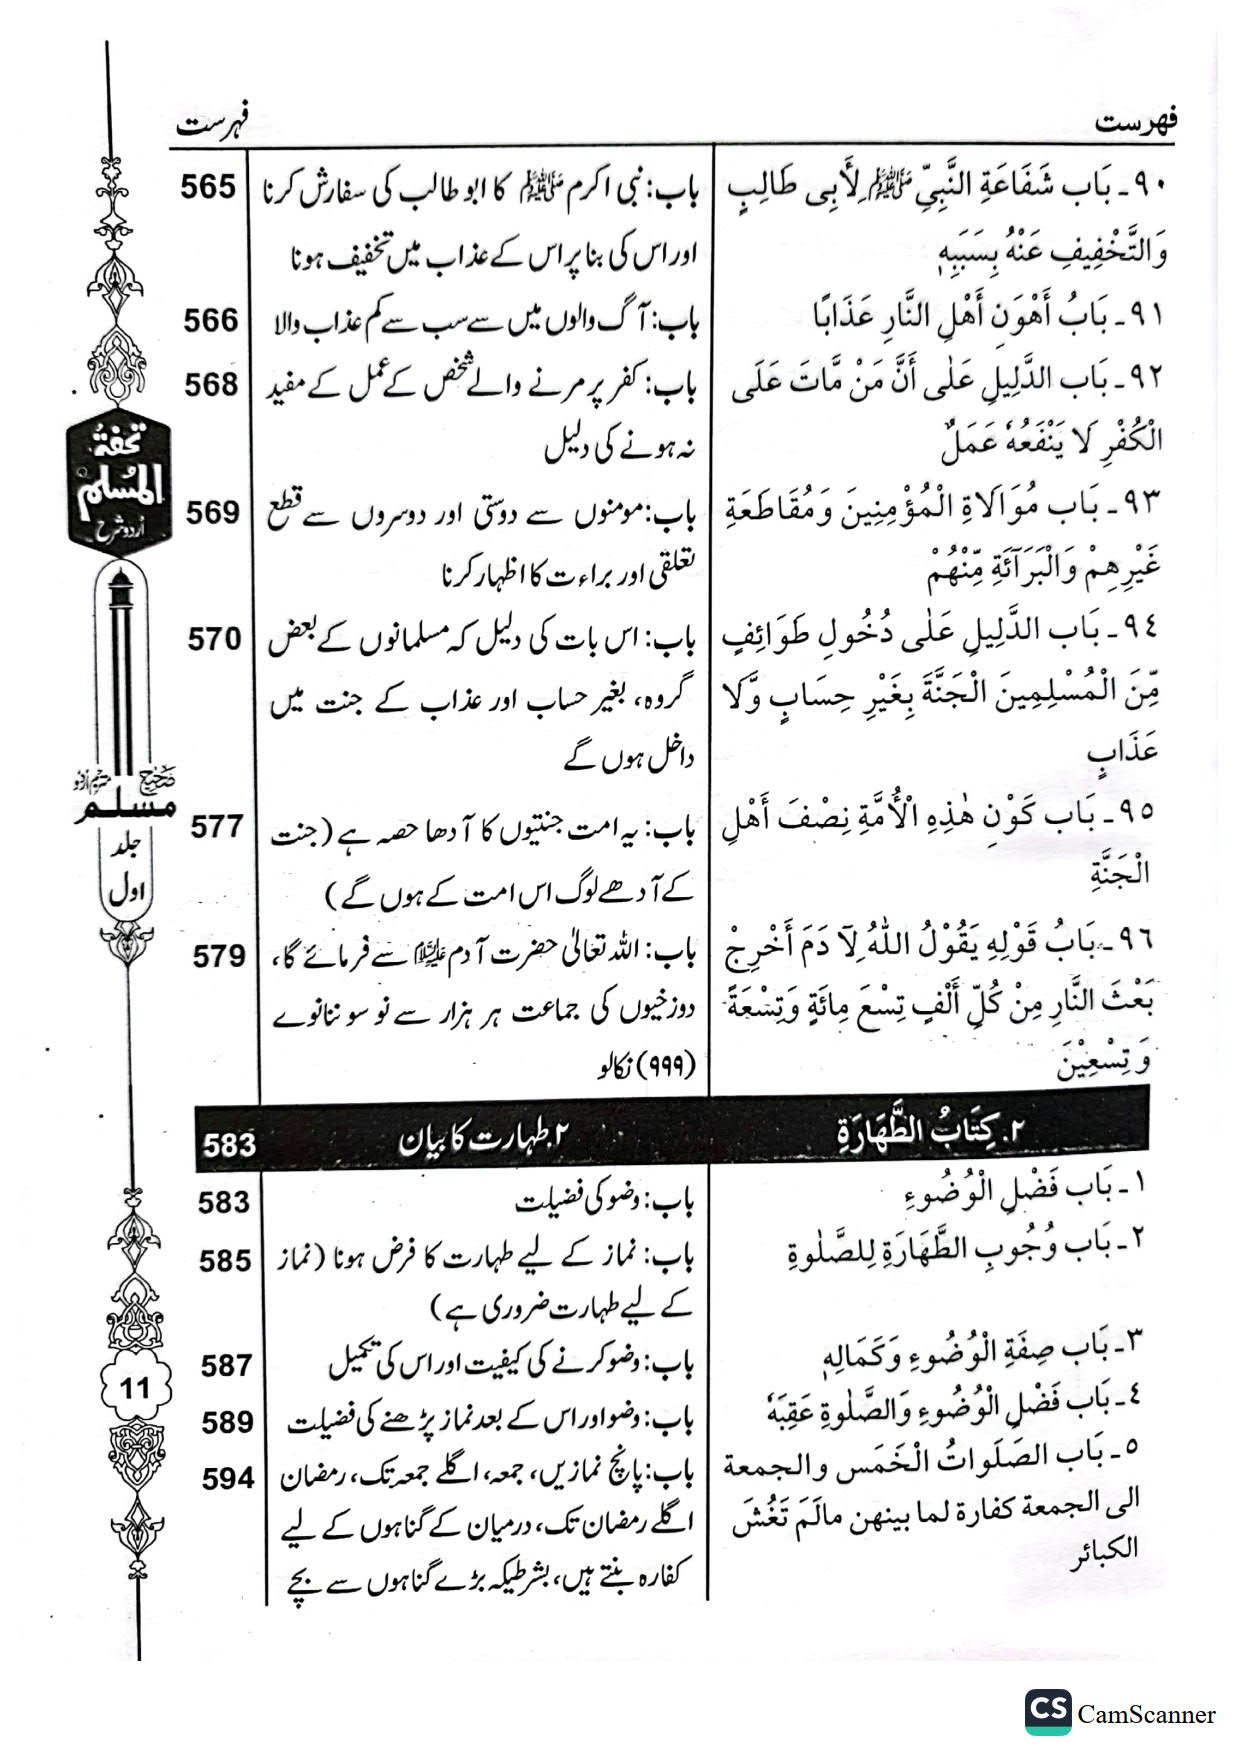 فهرست
فہرست
٩٠ـ بَاب شَفَاعَةِ النَّبِيِّ ﷺ لِأَبِى طَالِبٍ
وَالتَّخْفِيفِ عَنْهُ بِسَبَبِهٖ
باب: نبی اکرم ﷺ کا ابو طالب کی سفارش کرنا
اور اس کی بنا پر اس کے عذاب میں تخفیف ہونا
565
٩١ـ بَابُ أَهْوَنِ أَهْلِ النَّارِ عَذَابًا
باب: آگ والوں میں سے سب سے کم عذاب والا
566
٩٢ـ بَاب الدَّلِيلِ عَلٰى أَنَّ مَنْ مَّاتَ عَلَى
الْكُفْرِ لَا يَنْفَعُهٗ عَمَلٌ
باب: کفر پر مرنے والے شخص کے عمل کے مفید
نہ ہونے کی دلیل
568
٩٣ـ بَاب مُوَالَاةِ الْمُؤْمِنِينَ وَمُقَاطَعَةِ
غَيْرِهِمْ وَالْبَرَآئَةِ مِّنْهُمْ
باب: مومنوں سے دوستی اور دوسروں سے قطع
تعلقی اور براءت کا اظہار کرنا
569
٩٤ـ بَاب الدَّلِيلِ عَلٰى دُخُولِ طَوَائِفٍ
مِّنَ الْمُسْلِمِينَ الْجَنَّةَ بِغَيْرِ حِسَابٍ وَّلَا
عَذَابٍ
باب: اس بات کی دلیل کہ مسلمانوں کے بعض
گروہ، بغیر حساب اور عذاب کے جنت میں
داخل ہوں گے
570
٩٥ـ بَاب كَوْنِ هٰذِهِ الْأُمَّةِ نِصْفَ أَهْلِ
الْجَنَّةِ
باب: یہ امت جنتیوں کا آدھا حصہ ہے (جنت
کے آدھے لوگ اس امت کے ہوں گے)
577
٩٦ـ بَابُ قَوْلِهِ يَقُوْلُ اللهُ لِآ دَمَ أَخْرِجْ
بَعْثَ النَّارِ مِنْ كُلِّ أَلْفٍ تِسْعَ مِائَةٍ وَتِسْعَةً
وَ تِسْعِيْنَ
باب: اللہ تعالیٰ حضرت آدم علیہ السلام سے فرمائے گا،
دوزخیوں کی جماعت ہر ہزار سے نو سو ننانوے
(۹۹۹) نکالو
579
٢. كِتَابُ الطَّهَارَةِ
۲. طہارت کا بیان
583
١ـ بَاب فَضْلِ الْوُضُوءِ
باب: وضو کی فضیلت
583
٢ـ بَاب وُجُوبِ الطَّهَارَةِ لِلصَّلٰوةِ
باب: نماز کے لیے طہارت کا فرض ہونا (نماز
کے لیے طہارت ضروری ہے)
585
٣ـ بَاب صِفَةِ الْوُضُوءِ وَكَمَالِهٖ
باب: وضو کرنے کی کیفیت اور اس کی تکمیل
587
٤ـ بَاب فَضْلِ الْوُضُوءِ وَالصَّلٰوةِ عَقِبَهٗ
باب: وضو اور اس کے بعد نماز پڑھنے کی فضیلت
589
٥ـ بَاب الصَلَواتُ الْخَمَس والجمعة
الى الجمعة كفارة لما بينهن مالَمَ تَغُشَ
الكبائر
باب: پانچ نمازیں، جمعہ، اگلے جمعہ تک، رمضان
اگلے رمضان تک، درمیان کے گناہوں کے لیے
کفارہ بنتے ہیں، بشرطیکہ بڑے گناہوں سے بچے
594
تحفۃ
المُسلم
اُردو شرح
صحیح مترجم اُردو
مسلم
جلد
اول
11
CS CamScanner